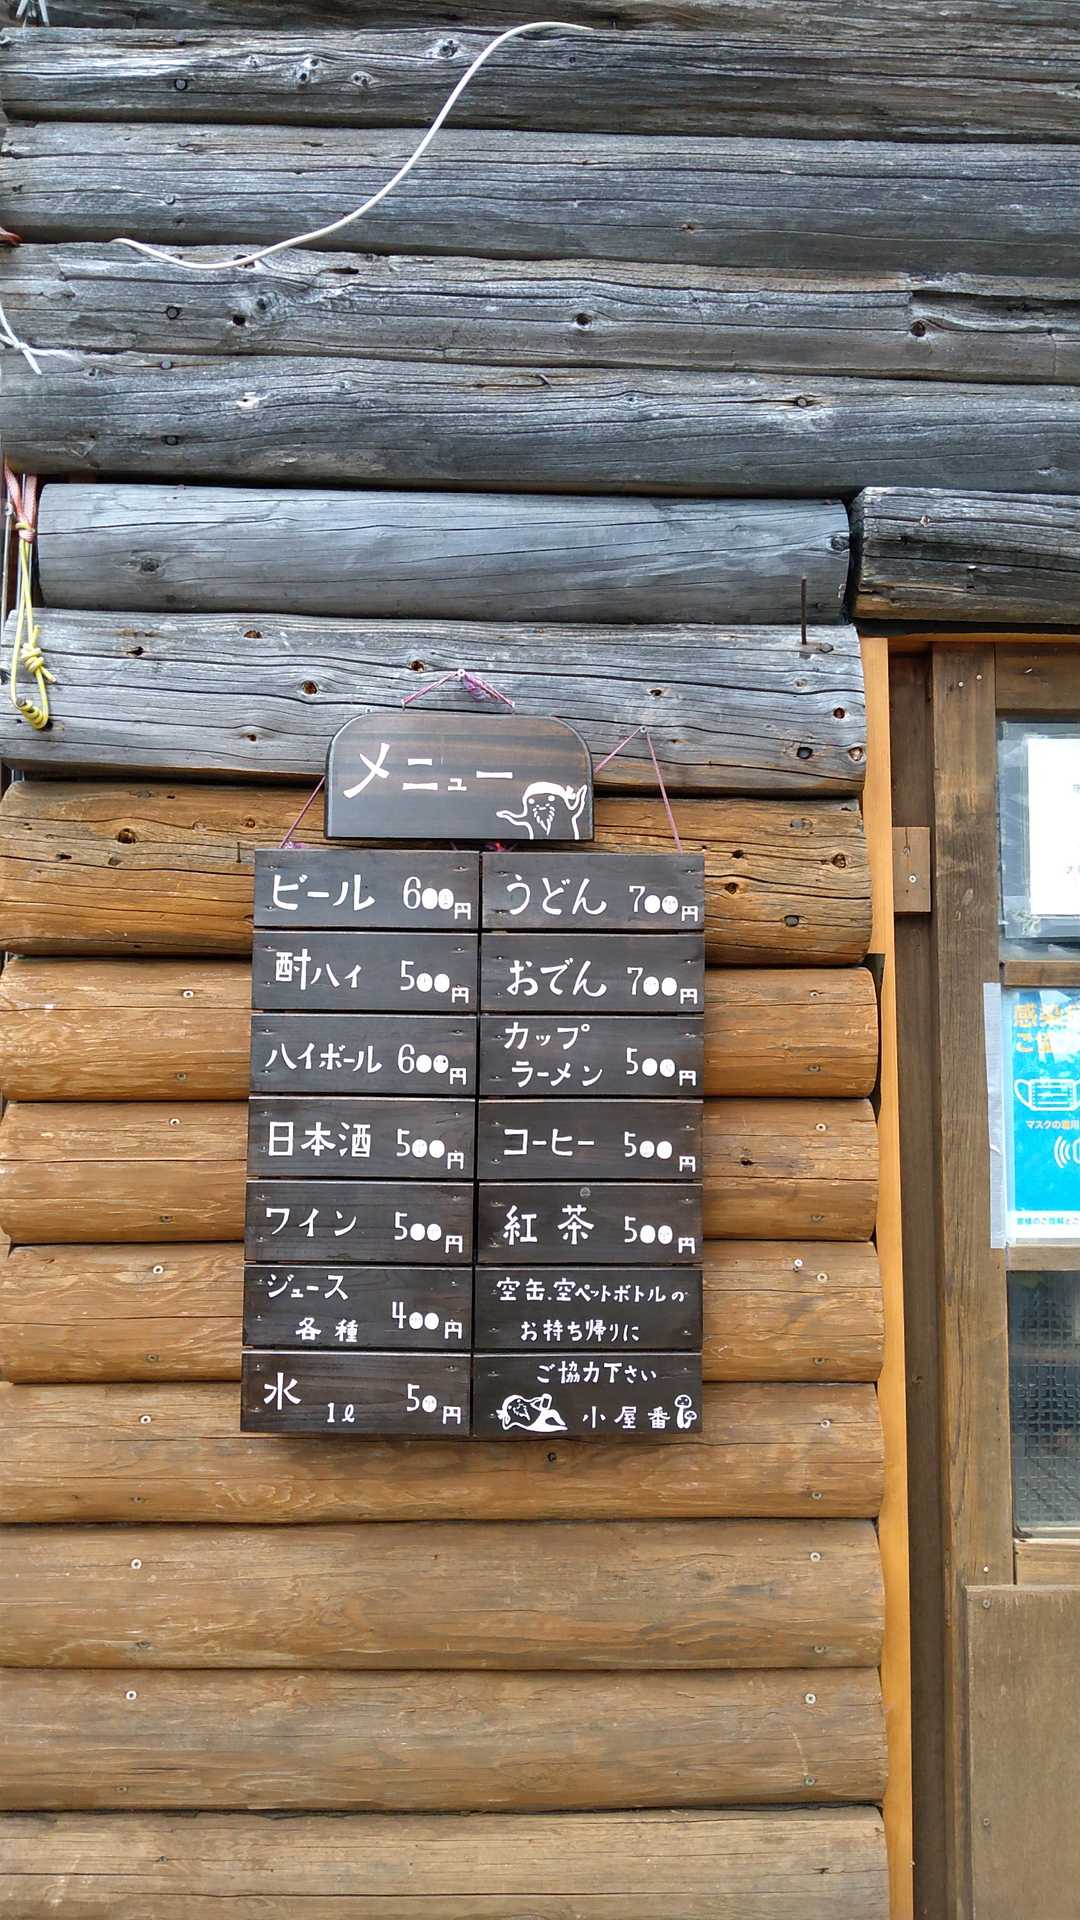 メニュー
ビール 600円
酎ハイ 500円
ハイボール 600円
日本酒 500円
ワイン 500円
ジュース
各種 400円
水 1ℓ 50円
うどん 700円
おでん 700円
カップ
ラーメン 500円
コーヒー 500円
紅茶 500円
空缶、空ペットボトルの
お持ち帰りに
ご協力下さい
小屋番
感染
ご
マスクの着用
皆様のご理解とご